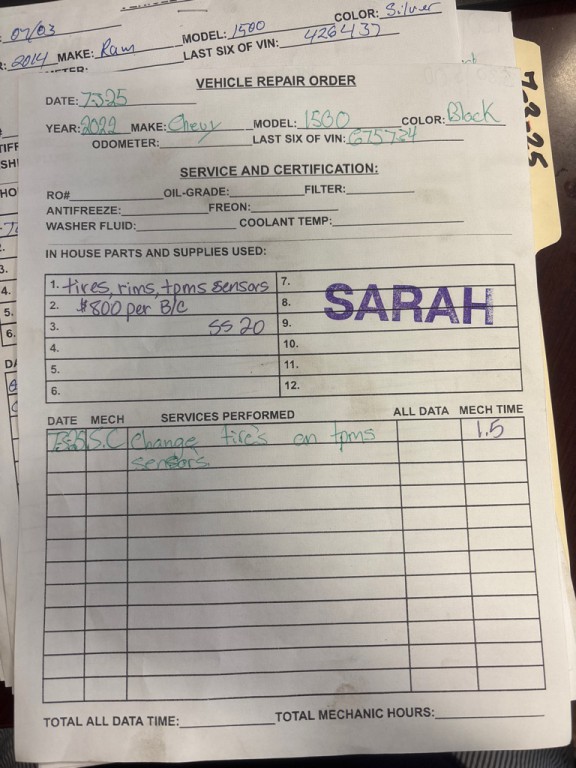 07/03
COLOR: Silver
MODEL: 1500
2014 MAKE: Ram
LAST SIX OF VIN: 426437
7-3-25
VEHICLE REPAIR ORDER
DATE: 7-3-25
YEAR: 2022 MAKE: Chevy MODEL: 1500 COLOR: Black
ODOMETER: LAST SIX OF VIN: 675734
SERVICE AND CERTIFICATION:
RO# OIL-GRADE: FILTER:
ANTIFREEZE: FREON:
WASHER FLUID: COOLANT TEMP:
IN HOUSE PARTS AND SUPPLIES USED:
1. tires, rims, tpms sensors 7.
2. $800 per B/C 8.
SARAH
3. SS 20 9.
4. 10.
5. 11.
6. 12.
DATE MECH SERVICES PERFORMED ALL DATA MECH TIME
S.C Change tire's on tpms 1.5
sensors.
TOTAL ALL DATA TIME: TOTAL MECHANIC HOURS:
3.
4.
5.
6.